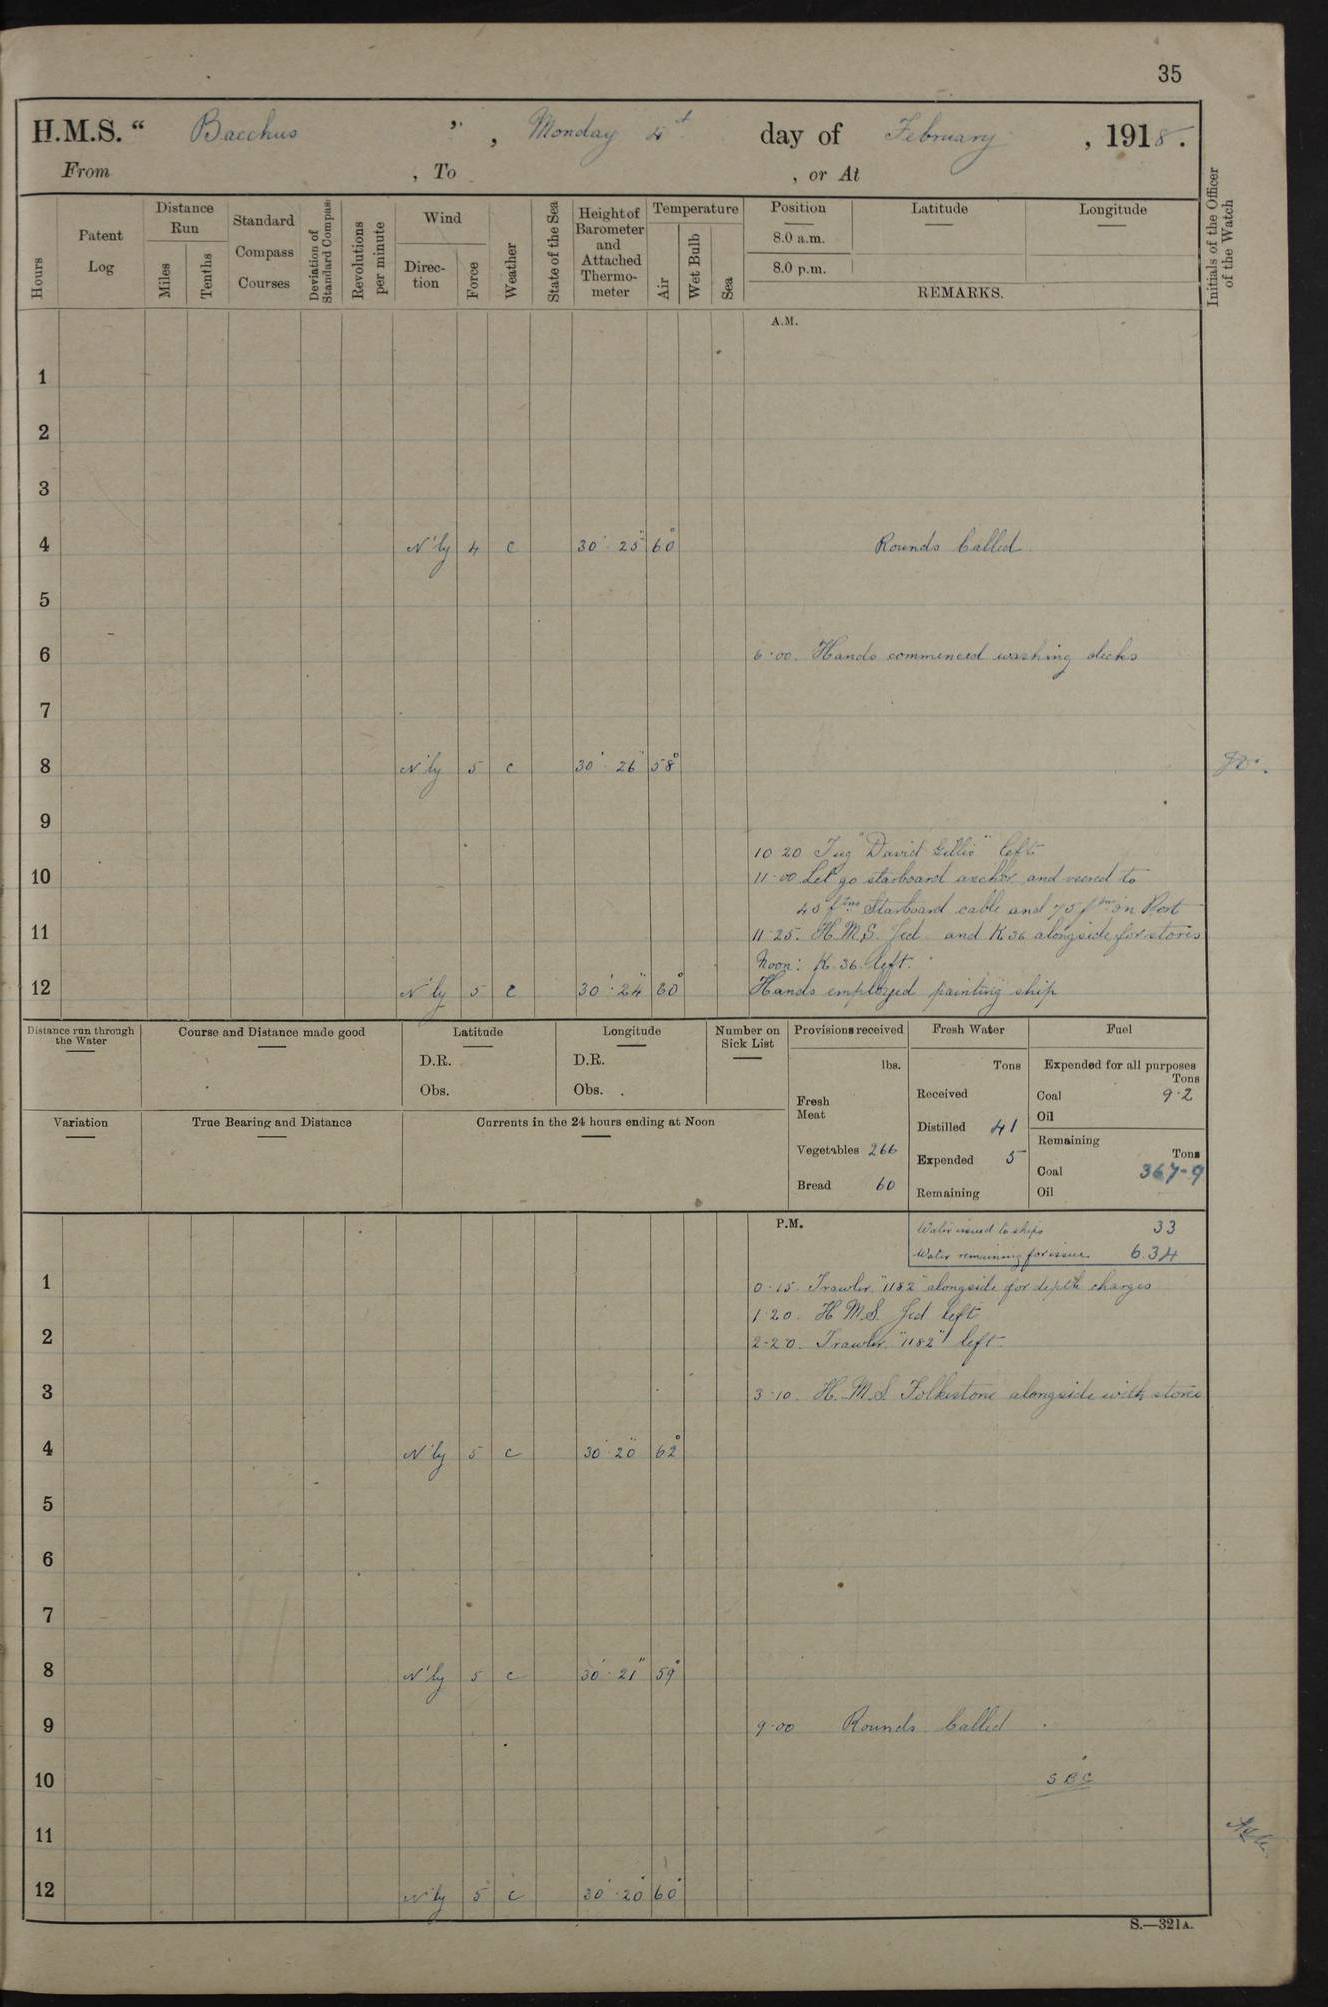 35
H.M.S. “ Bacchus ” , Monday 4th day of February , 1918.
From , To , or At
Hours
Patent Log
Distance Run
Miles
Tenths
Standard Compass Courses
Deviation of Standard Compass
Revolutions per minute
Wind
Direction
Force
Weather
State of the Sea
Height of Barometer and Attached Thermometer
Temperature
Air
Wet Bulb
Sea
Position
8.0 a.m.
8.0 p.m.
Latitude
Longitude
REMARKS.
Initials of the Officer of the Watch
A.M.
1
2
3
4 N'ly 4 c 30' 25" 60° Rounds Called
5
6 6·00. Hands commenced washing decks
7
8 N'ly 5 c 30' 26" 58°
9
10·20 Tug "David Gillis" left
10 11·00 Let go starboard anchor and veered to
45 fms Starboard cable and 75 fms on Port
11 11·25. H.M.S. Jed and K36 alongside for stores
Noon: K.36. left.
12 N'ly 5 c 30' 24" 60° Hands employed painting ship
Distance run through the Water
Course and Distance made good
Latitude
D.R.
Obs.
Longitude
D.R.
Obs.
Number on Sick List
Provisions received
lbs.
Fresh Meat
Vegetables 266
Bread 60
Fresh Water
Tons
Received
Distilled 41
Expended 5
Remaining
Fuel
Expended for all purposes
Tons
Coal 9·2
Oil
Remaining
Tons
Coal 367-9
Oil
Variation
True Bearing and Distance
Currents in the 24 hours ending at Noon
P.M.
Water issued to ships 33
Water remaining for issue 634
1 0-15. Trawler "1182" alongside for depth charges
1·20. H.M.S. Jed left
2 2-20. Trawler "1182" left.
3 3·10. H.M.S. Folkestone alongside with stores
4 N'ly 5 c 30' 20" 62°
5
6
7
8 N'ly 5 c 30' 21" 59°
9 9·00 Rounds Called
10 SBC
11
12 N'ly 5 c 30' 20 60°
S.—321A.